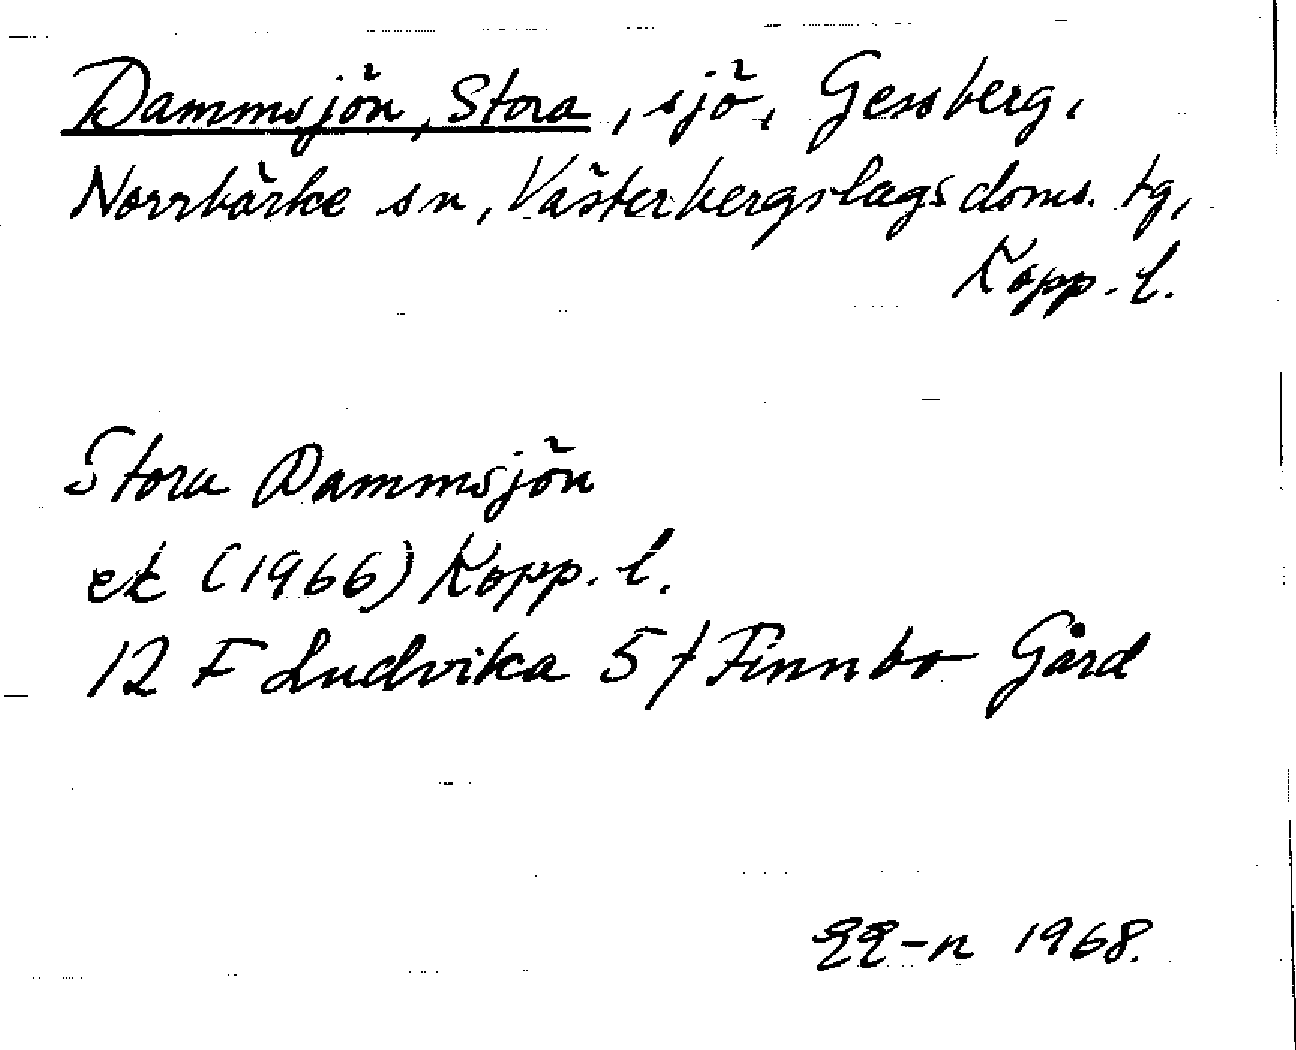 Dammsjön, Stora, sjö, Gessberg,
Norrbärke sn, Västerbergslags doms. tg,
Kopp. l.
Stora Dammsjön
ek (1966) Kopp. l.
12 F Ludvika 5 f Finnbo Gård
EE-n 1968.